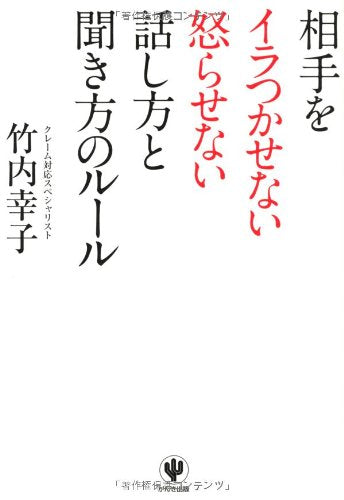 「著作権保護コンテンツ」
相手を
イラつかせない
怒らせない
話し方と
聞き方のルール
クレーム対応スペシャリスト
竹内幸子
「著作権保護コンテンツ」
かんき出版